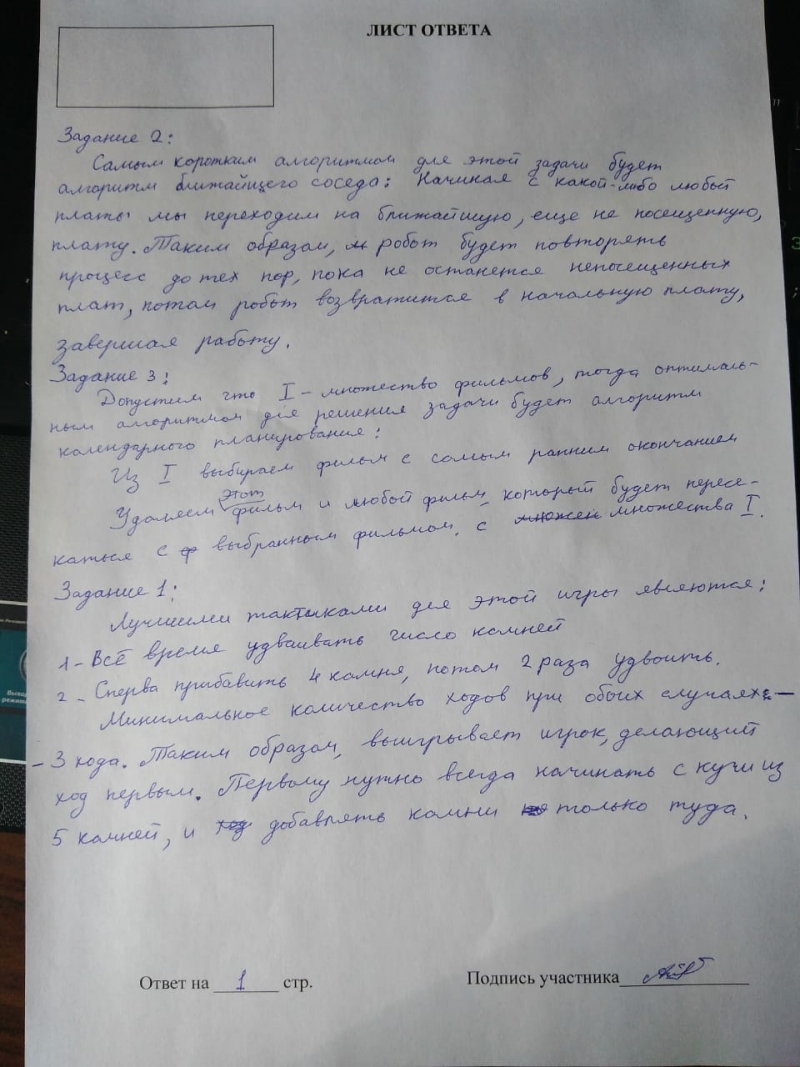 ЛИСТ ОТВЕТА
Задание 2:
Самым коротким алгоритмом для этой задачи будет
алгоритм ближайщего соседа: Начиная с какой-либо любый
платы мы переходим на ближайшую, еще не посещенную,
плату. Таким образом, робот будет повторять
процесс до тех пор, пока не останется непосещенных
плат, потом робот возвратится в начальную плату,
завершая работу.
Задание 3:
Допустим что I - множество фильмов, тогда оптималь-
ным алгоритмом для решения задачи будет алгоритм
календарного планирования:
Из I выбираем фильм с самым ранним окончанием
Удаляем этот фильм и любой фильм, который будет пересе-
каться с выбранным фильмом. с множества I.
Задание 1:
Лучшими тактиками для этой игры являются:
1 - Всё время удваивать число камней
2 - Сперва прибавить 4 камня, потом 2 раза удвоить.
Минимальное количество ходов при обоих случаях: -
- 3 хода. Таким образом, выигрывает игрок, делающий
ход первым. Первому нужно всегда начинать с кучи из
5 камней, и добавлять камни только туда.
Ответ на 1 стр. Подпись участника